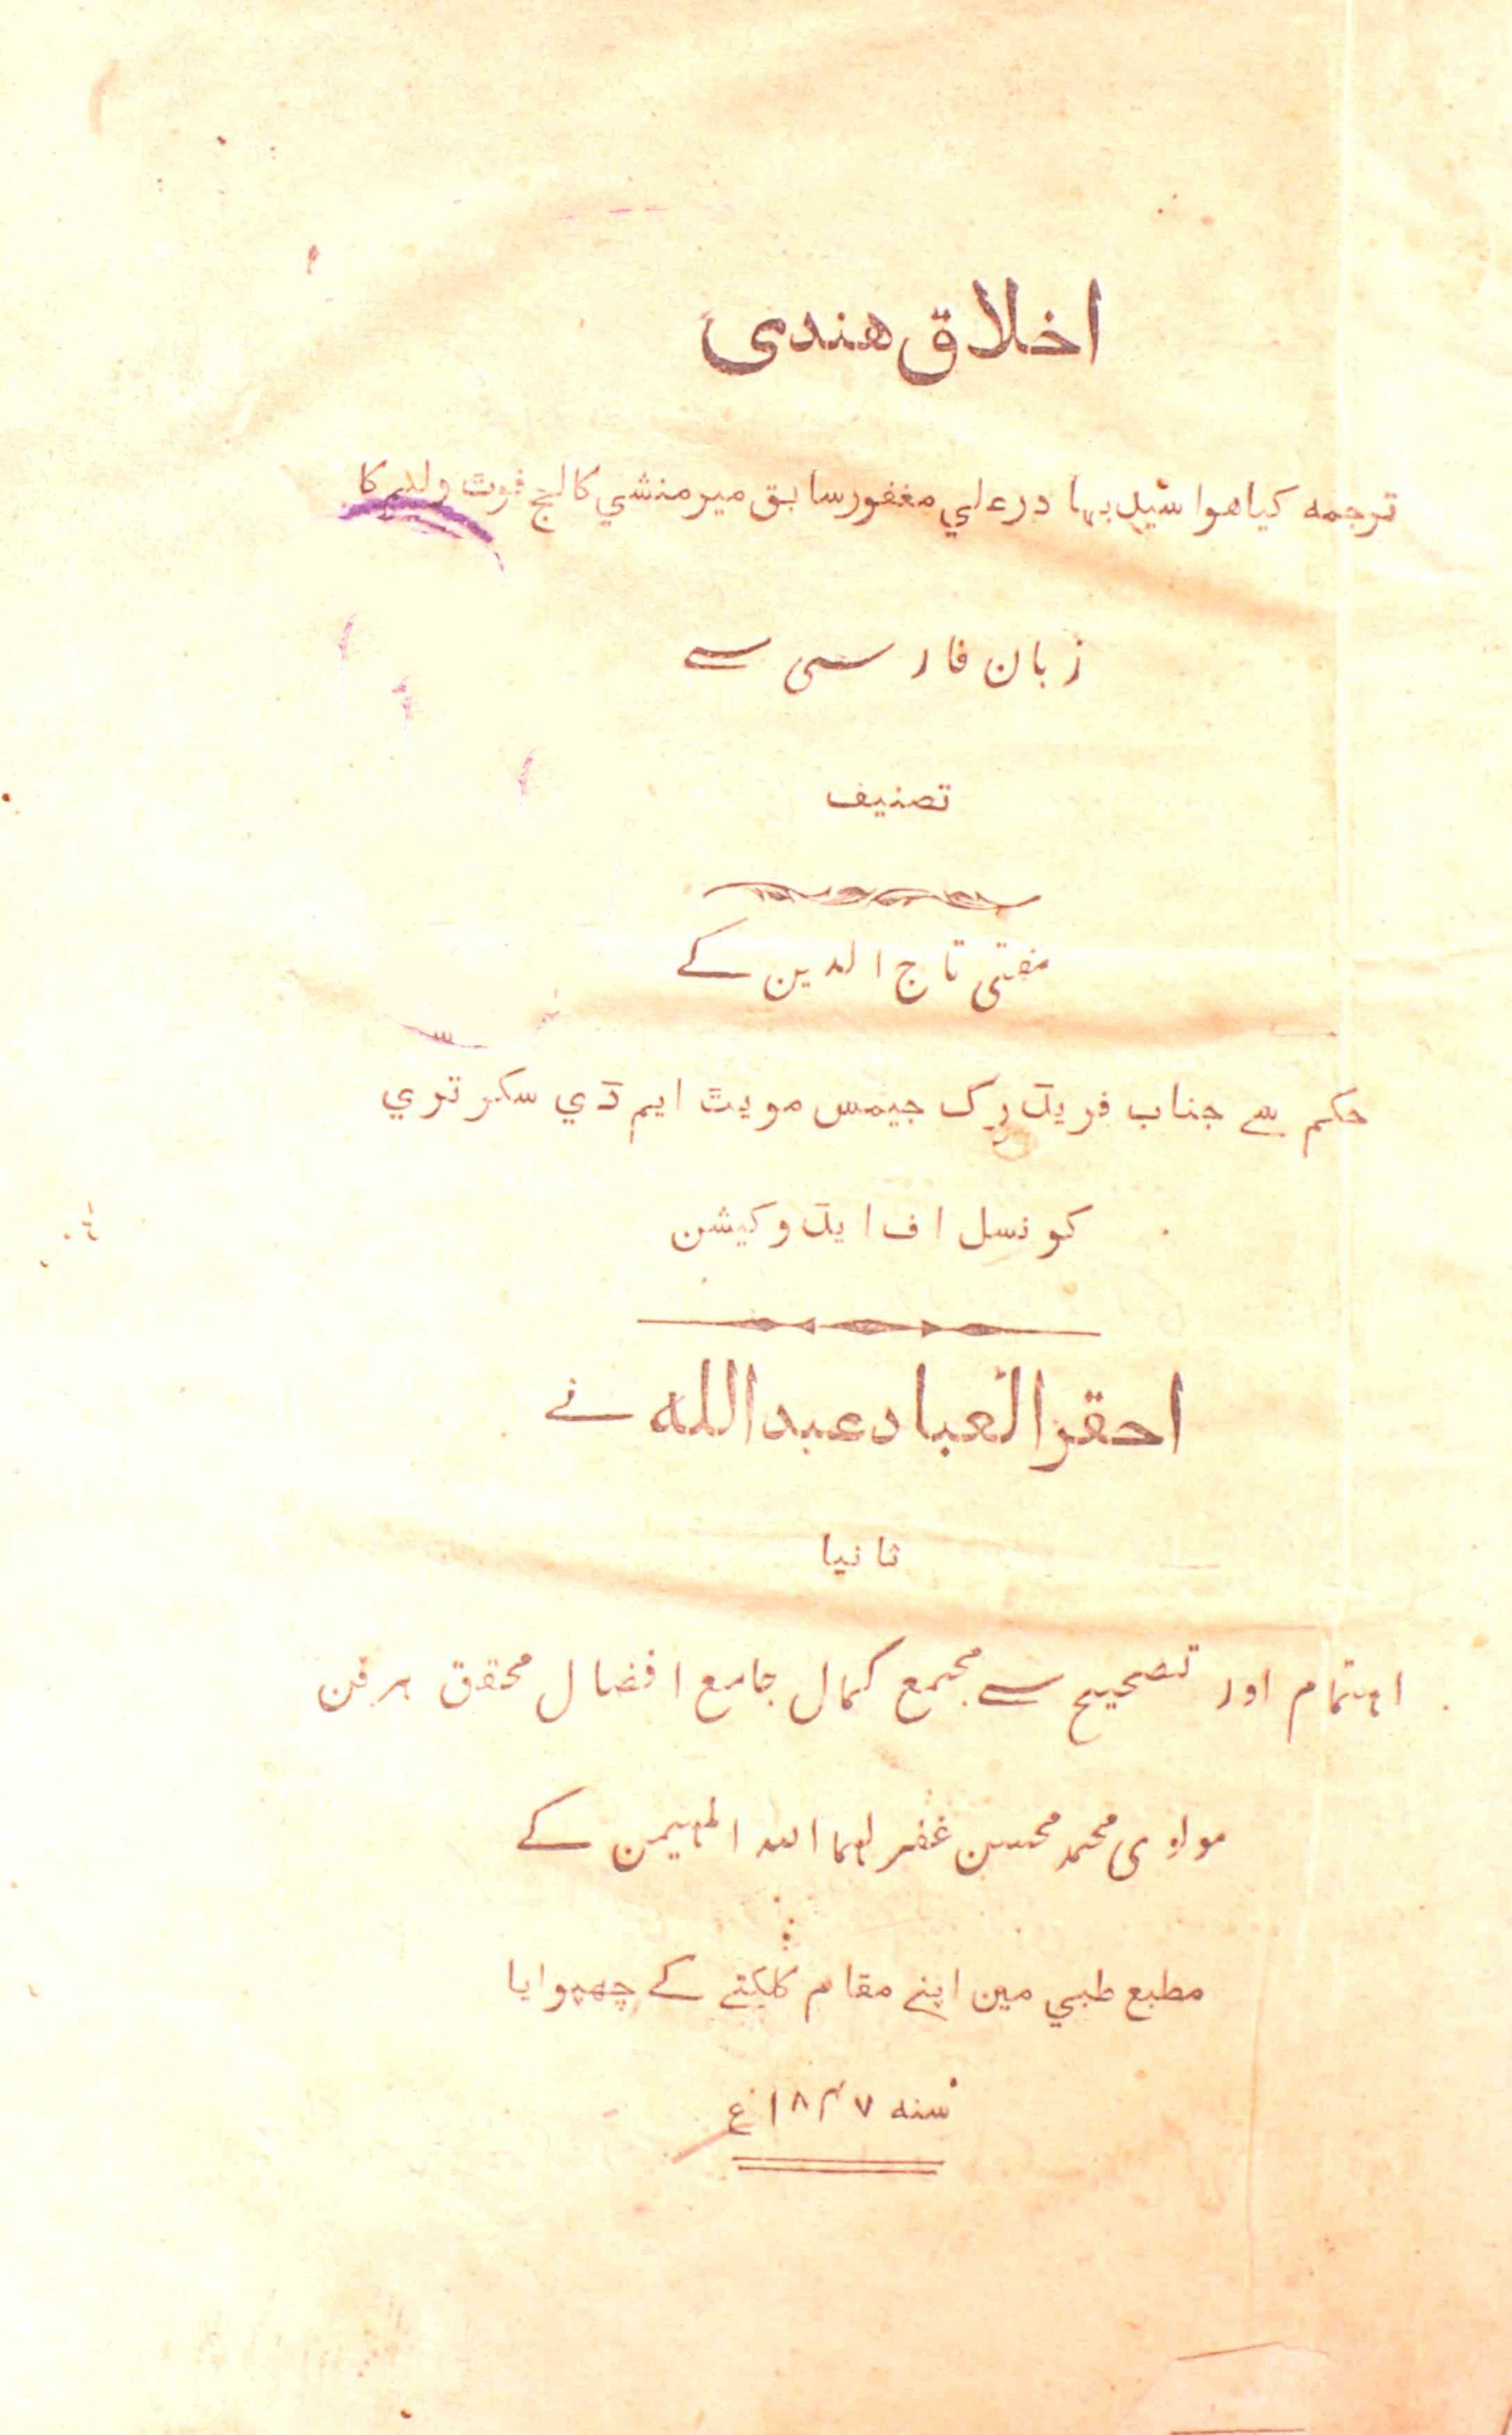 اخلاق هندی
ترجمه کیا هوا سّید بهادر علي مغفور سابق میر منشي کالج فوت ولیم کا
زبان فارسی سے
تصنیف
مفتی تاج الدین کے
حکم سے جناب فریڈرک جیمس مویٹ ایم ڈي سکرتري
کونسل اف ایڈوکیشن
احقر العباد عبد الله نے
ثانیا
اہتمام اور تصحیح سے مجمع کمال جامع افضال محقق ہر فن
مولوی محمد محسن غفر لہما اللہ المہیمن کے
مطبع طبي مین اپنے مقام کلکتے کے چھپوایا
سنه ۱۸۴۷ ع